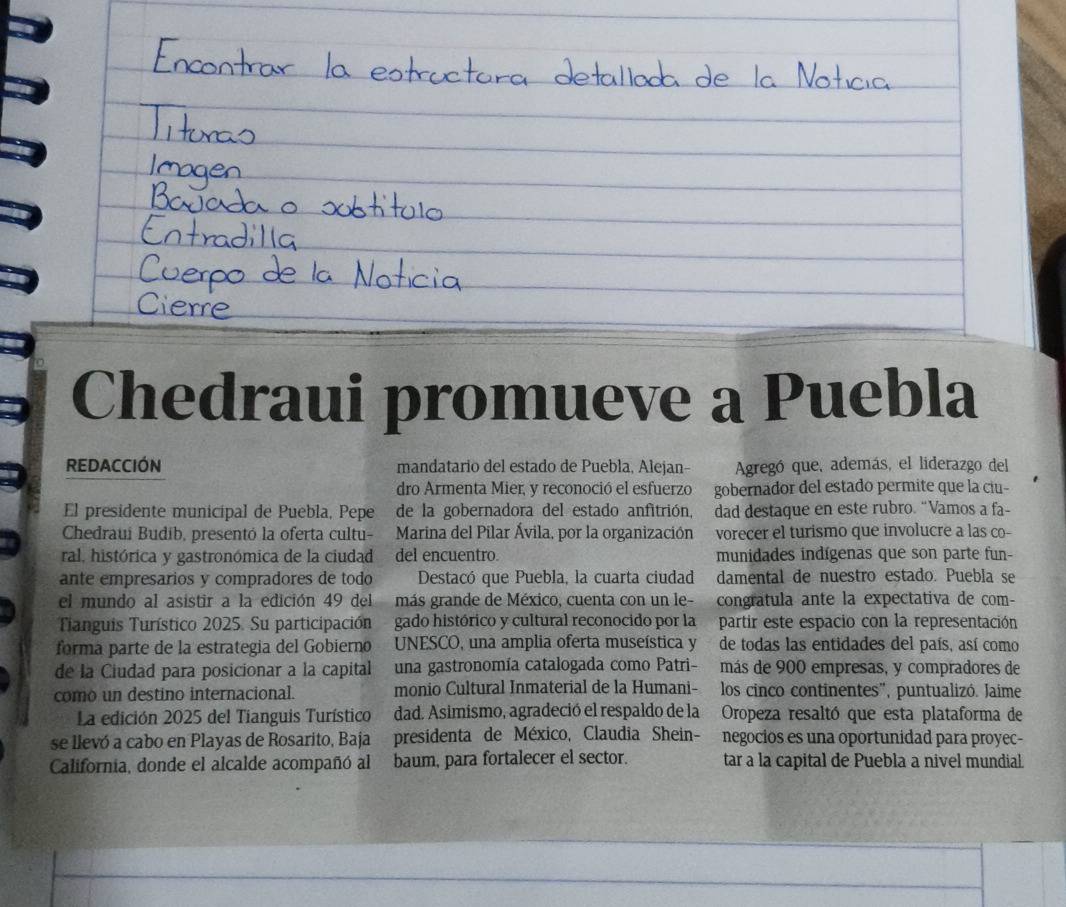 Encontrar la estructura detallada de la Noticia
Tituras
Imagen
Bajada o subtitulo
Entradilla
Cuerpo de la Noticia
Cierre
Chedraui promueve a Puebla
REDACCIÓN
El presidente municipal de Puebla, Pepe
Chedraui Budib, presentó la oferta cultu-
ral, histórica y gastronómica de la ciudad
ante empresarios y compradores de todo
el mundo al asistir a la edición 49 del
Tianguis Turístico 2025. Su participación
forma parte de la estrategia del Gobierno
de la Ciudad para posicionar a la capital
como un destino internacional.
La edición 2025 del Tianguis Turístico
se llevó a cabo en Playas de Rosarito, Baja
California, donde el alcalde acompañó al
mandatario del estado de Puebla, Alejan-
dro Armenta Mier, y reconoció el esfuerzo
de la gobernadora del estado anfitrión,
Marina del Pilar Ávila, por la organización
del encuentro.
Destacó que Puebla, la cuarta ciudad
más grande de México, cuenta con un le-
gado histórico y cultural reconocido por la
UNESCO, una amplia oferta museística y
una gastronomía catalogada como Patri-
monio Cultural Inmaterial de la Humani-
dad. Asimismo, agradeció el respaldo de la
presidenta de México, Claudia Shein-
baum, para fortalecer el sector.
Agregó que, además, el liderazgo del
gobernador del estado permite que la ciu-
dad destaque en este rubro. "Vamos a fa-
vorecer el turismo que involucre a las co-
munidades indígenas que son parte fun-
damental de nuestro estado. Puebla se
congratula ante la expectativa de com-
partir este espacio con la representación
de todas las entidades del país, así como
más de 900 empresas, y compradores de
los cinco continentes", puntualizó. Jaime
Oropeza resaltó que esta plataforma de
negocios es una oportunidad para proyec-
tar a la capital de Puebla a nivel mundial.